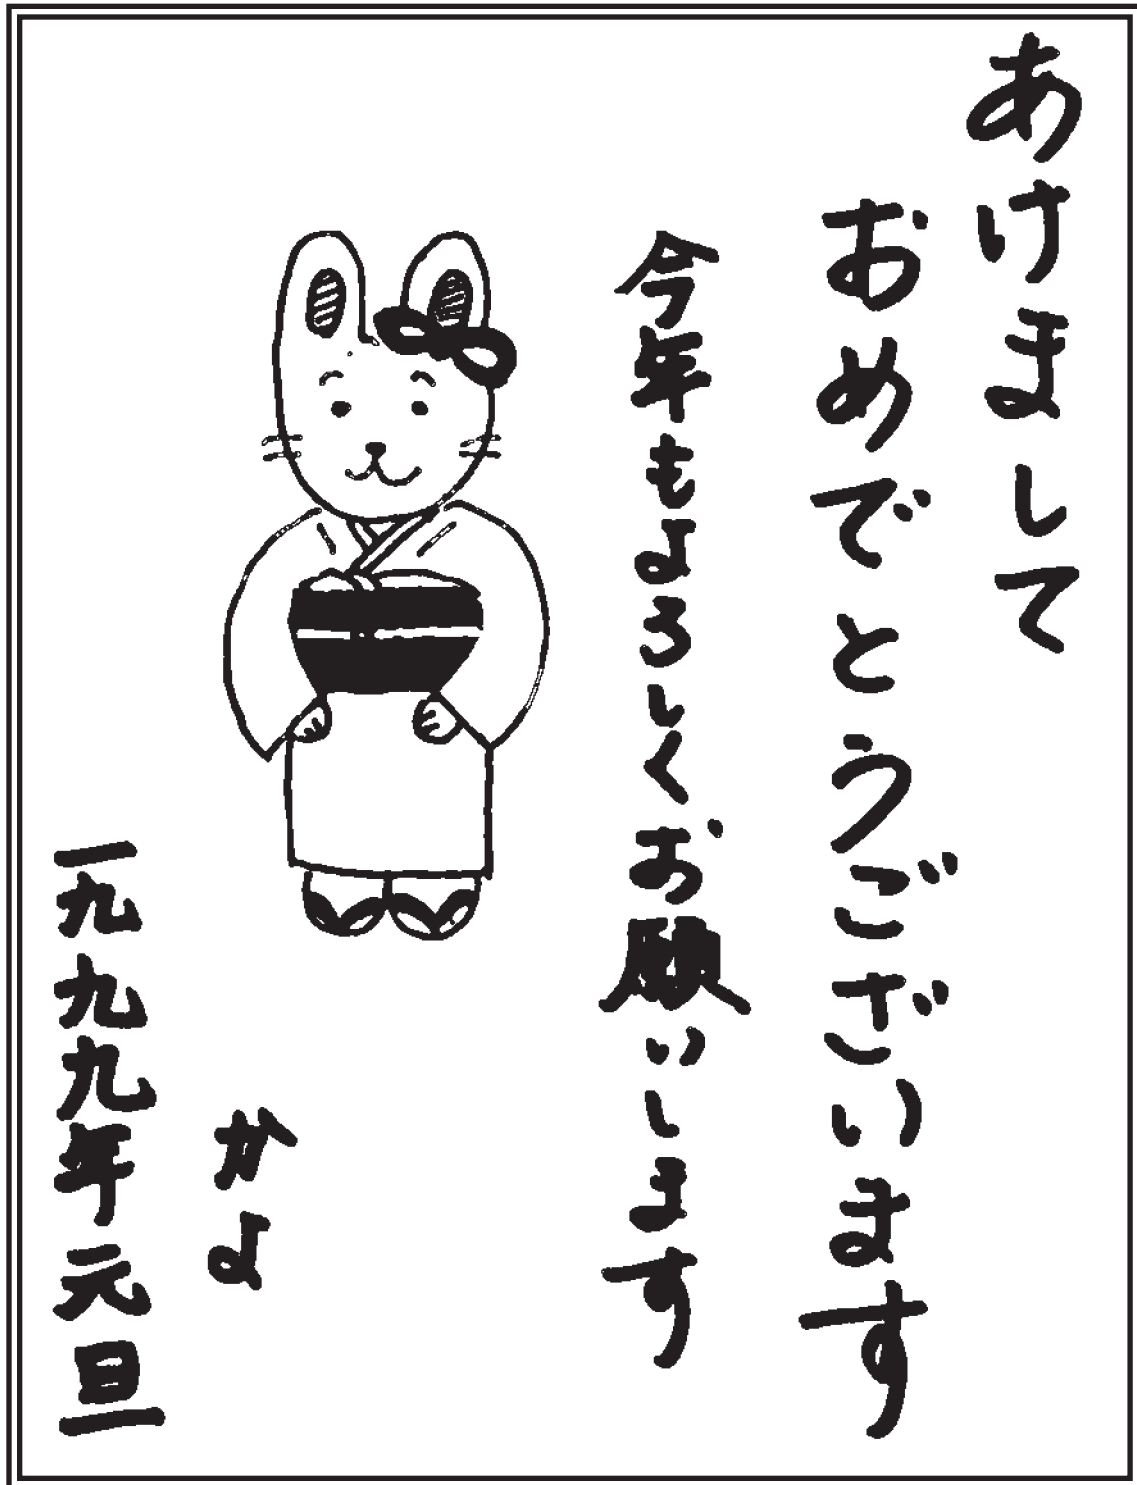 あけまして
おめでとうございます
今年もよろしくお願いします
かよ
一九九九年元旦